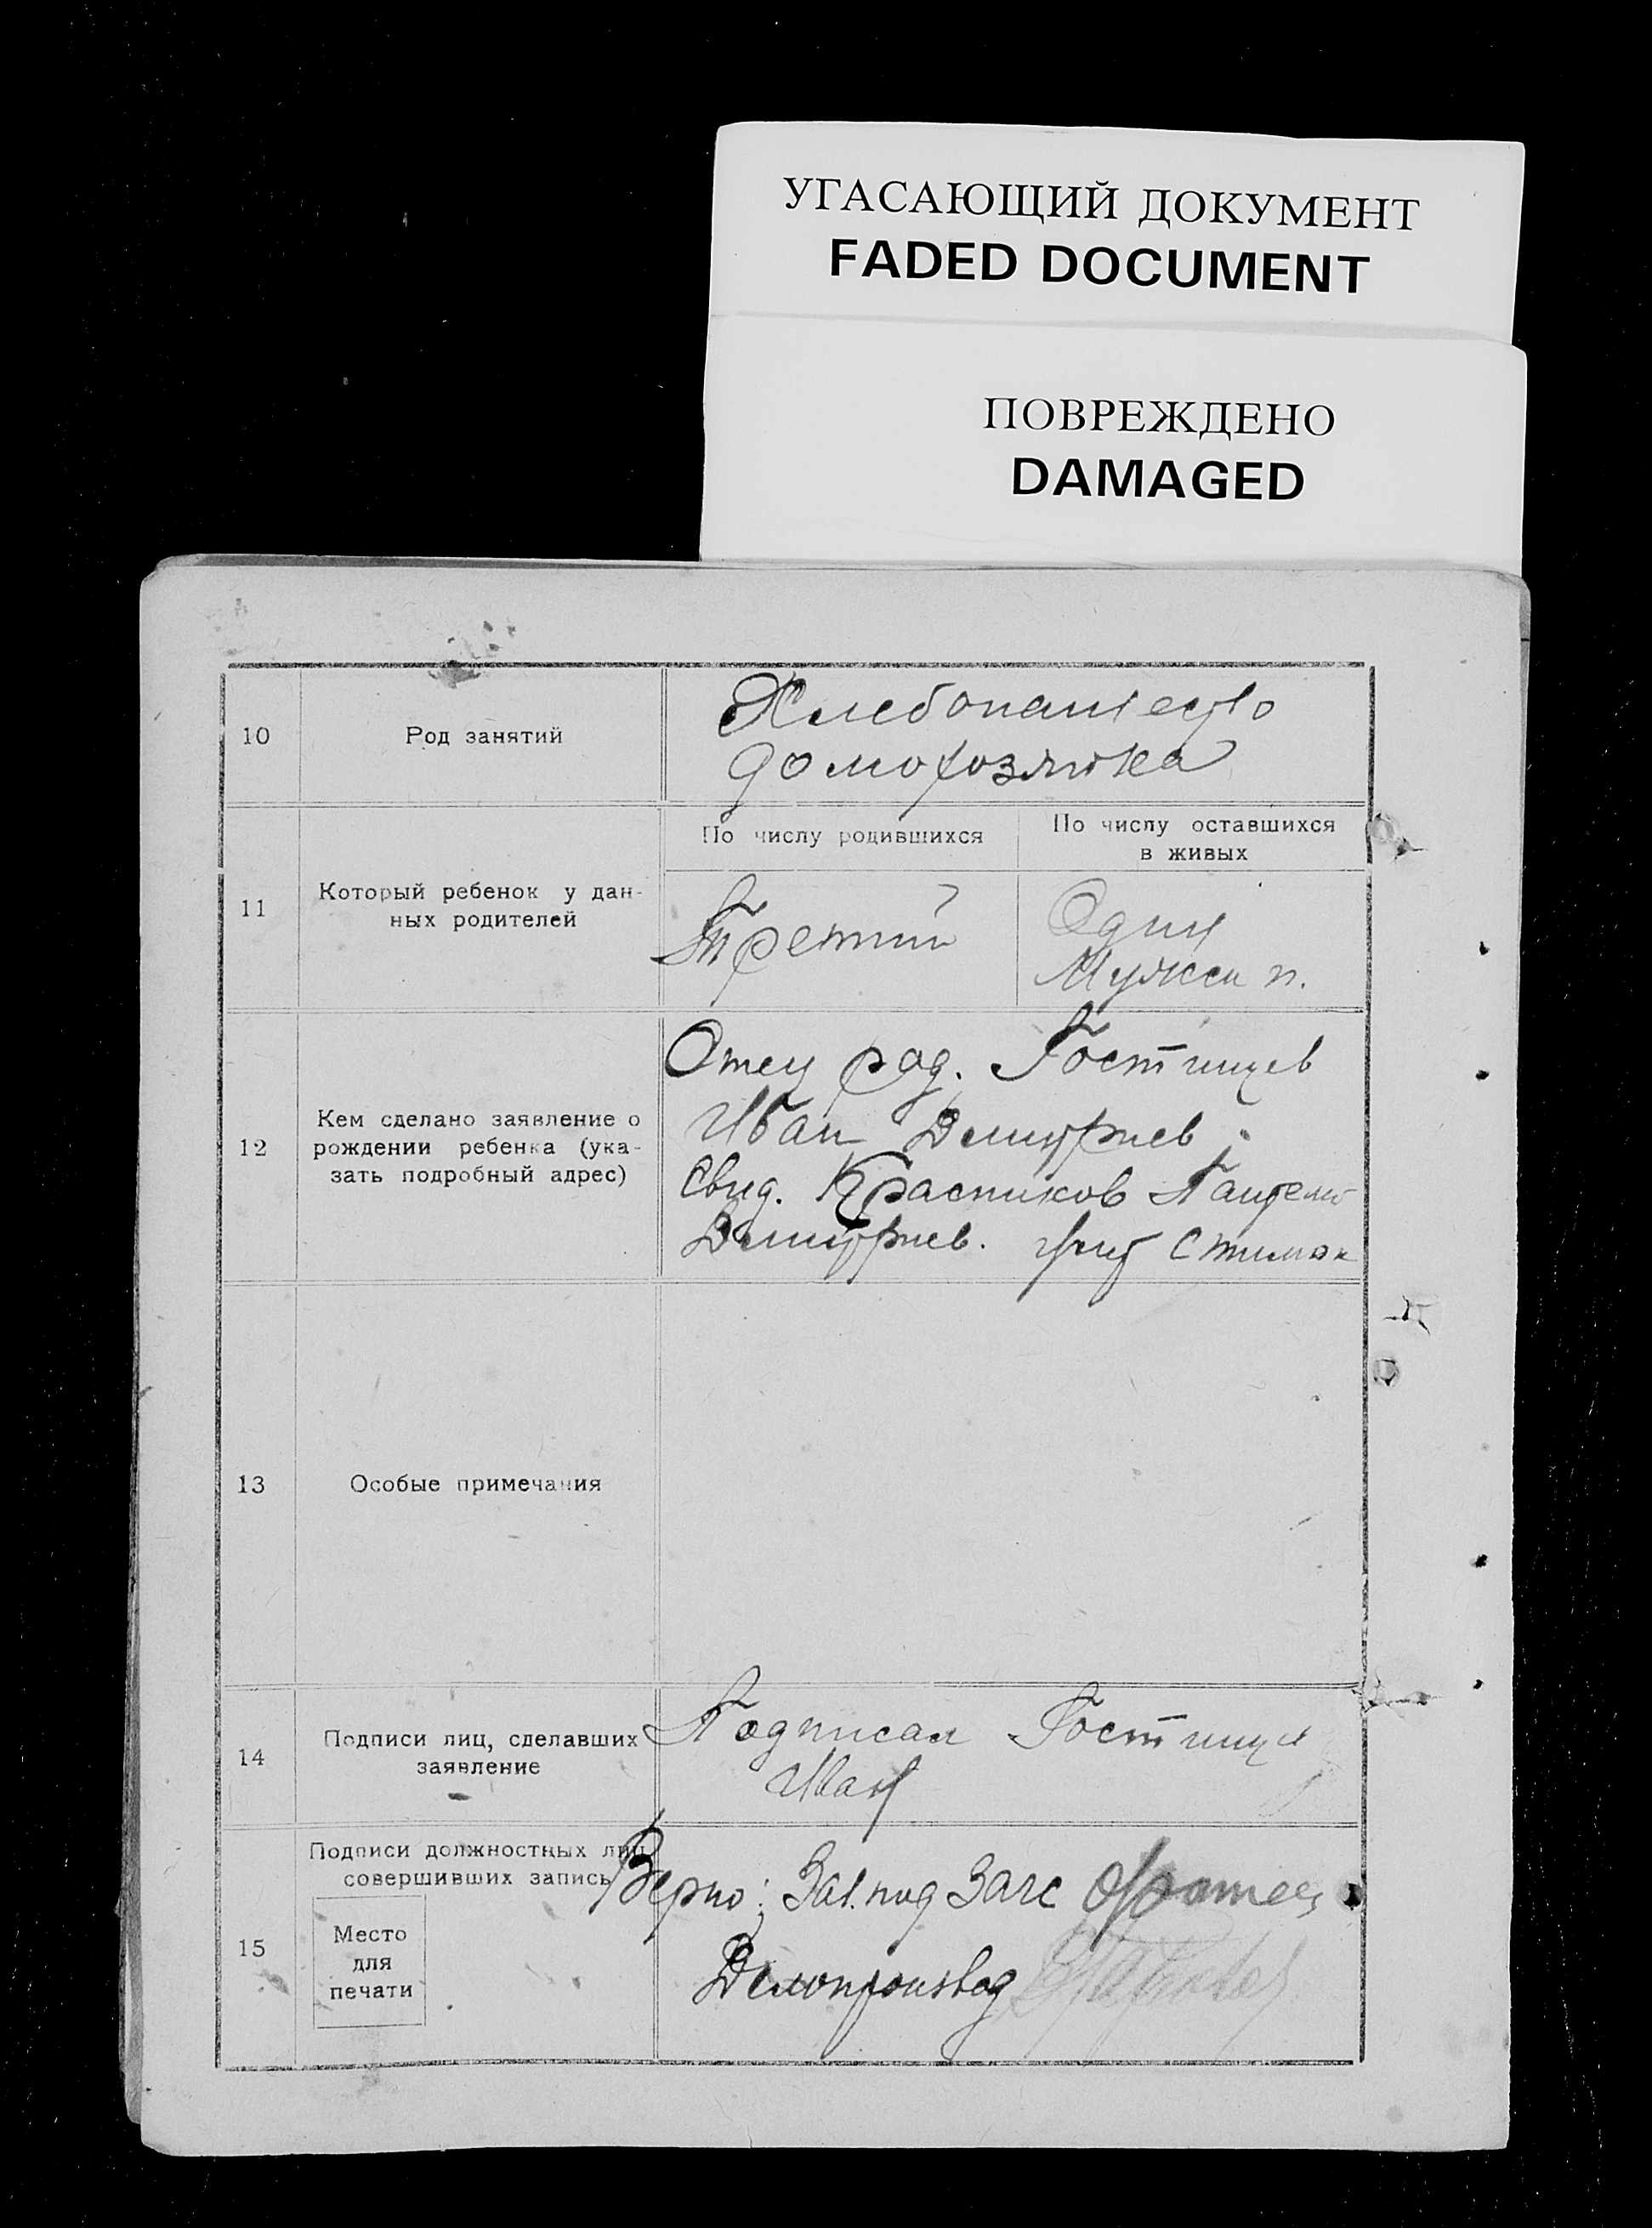 УГАСАЮЩИЙ ДОКУМЕНТ
FADED DOCUMENT
ПОВРЕЖДЕНО
DAMAGED
10
Род занятий
Хлебопашество
домохозяйка
11
Который ребенок у дан-
ных родителей
По числу родившихся
Третий
По числу оставшихся
в живых
Один
Мужск п.
12
Кем сделано заявление о
рождении ребенка (ука-
зать подробный адрес)
Отец род. Гостищев
Иван Дмитриев
Свид. Красников Пантелей
Дмитриев.
13
Особые примечания
14
Подписи лиц, сделавших
заявление
Подписал Гостищев
Иван
15
Подписи должностных лиц,
совершивших запись
Место
для
печати
Верно: Зав. под Загс
Делопроизвод